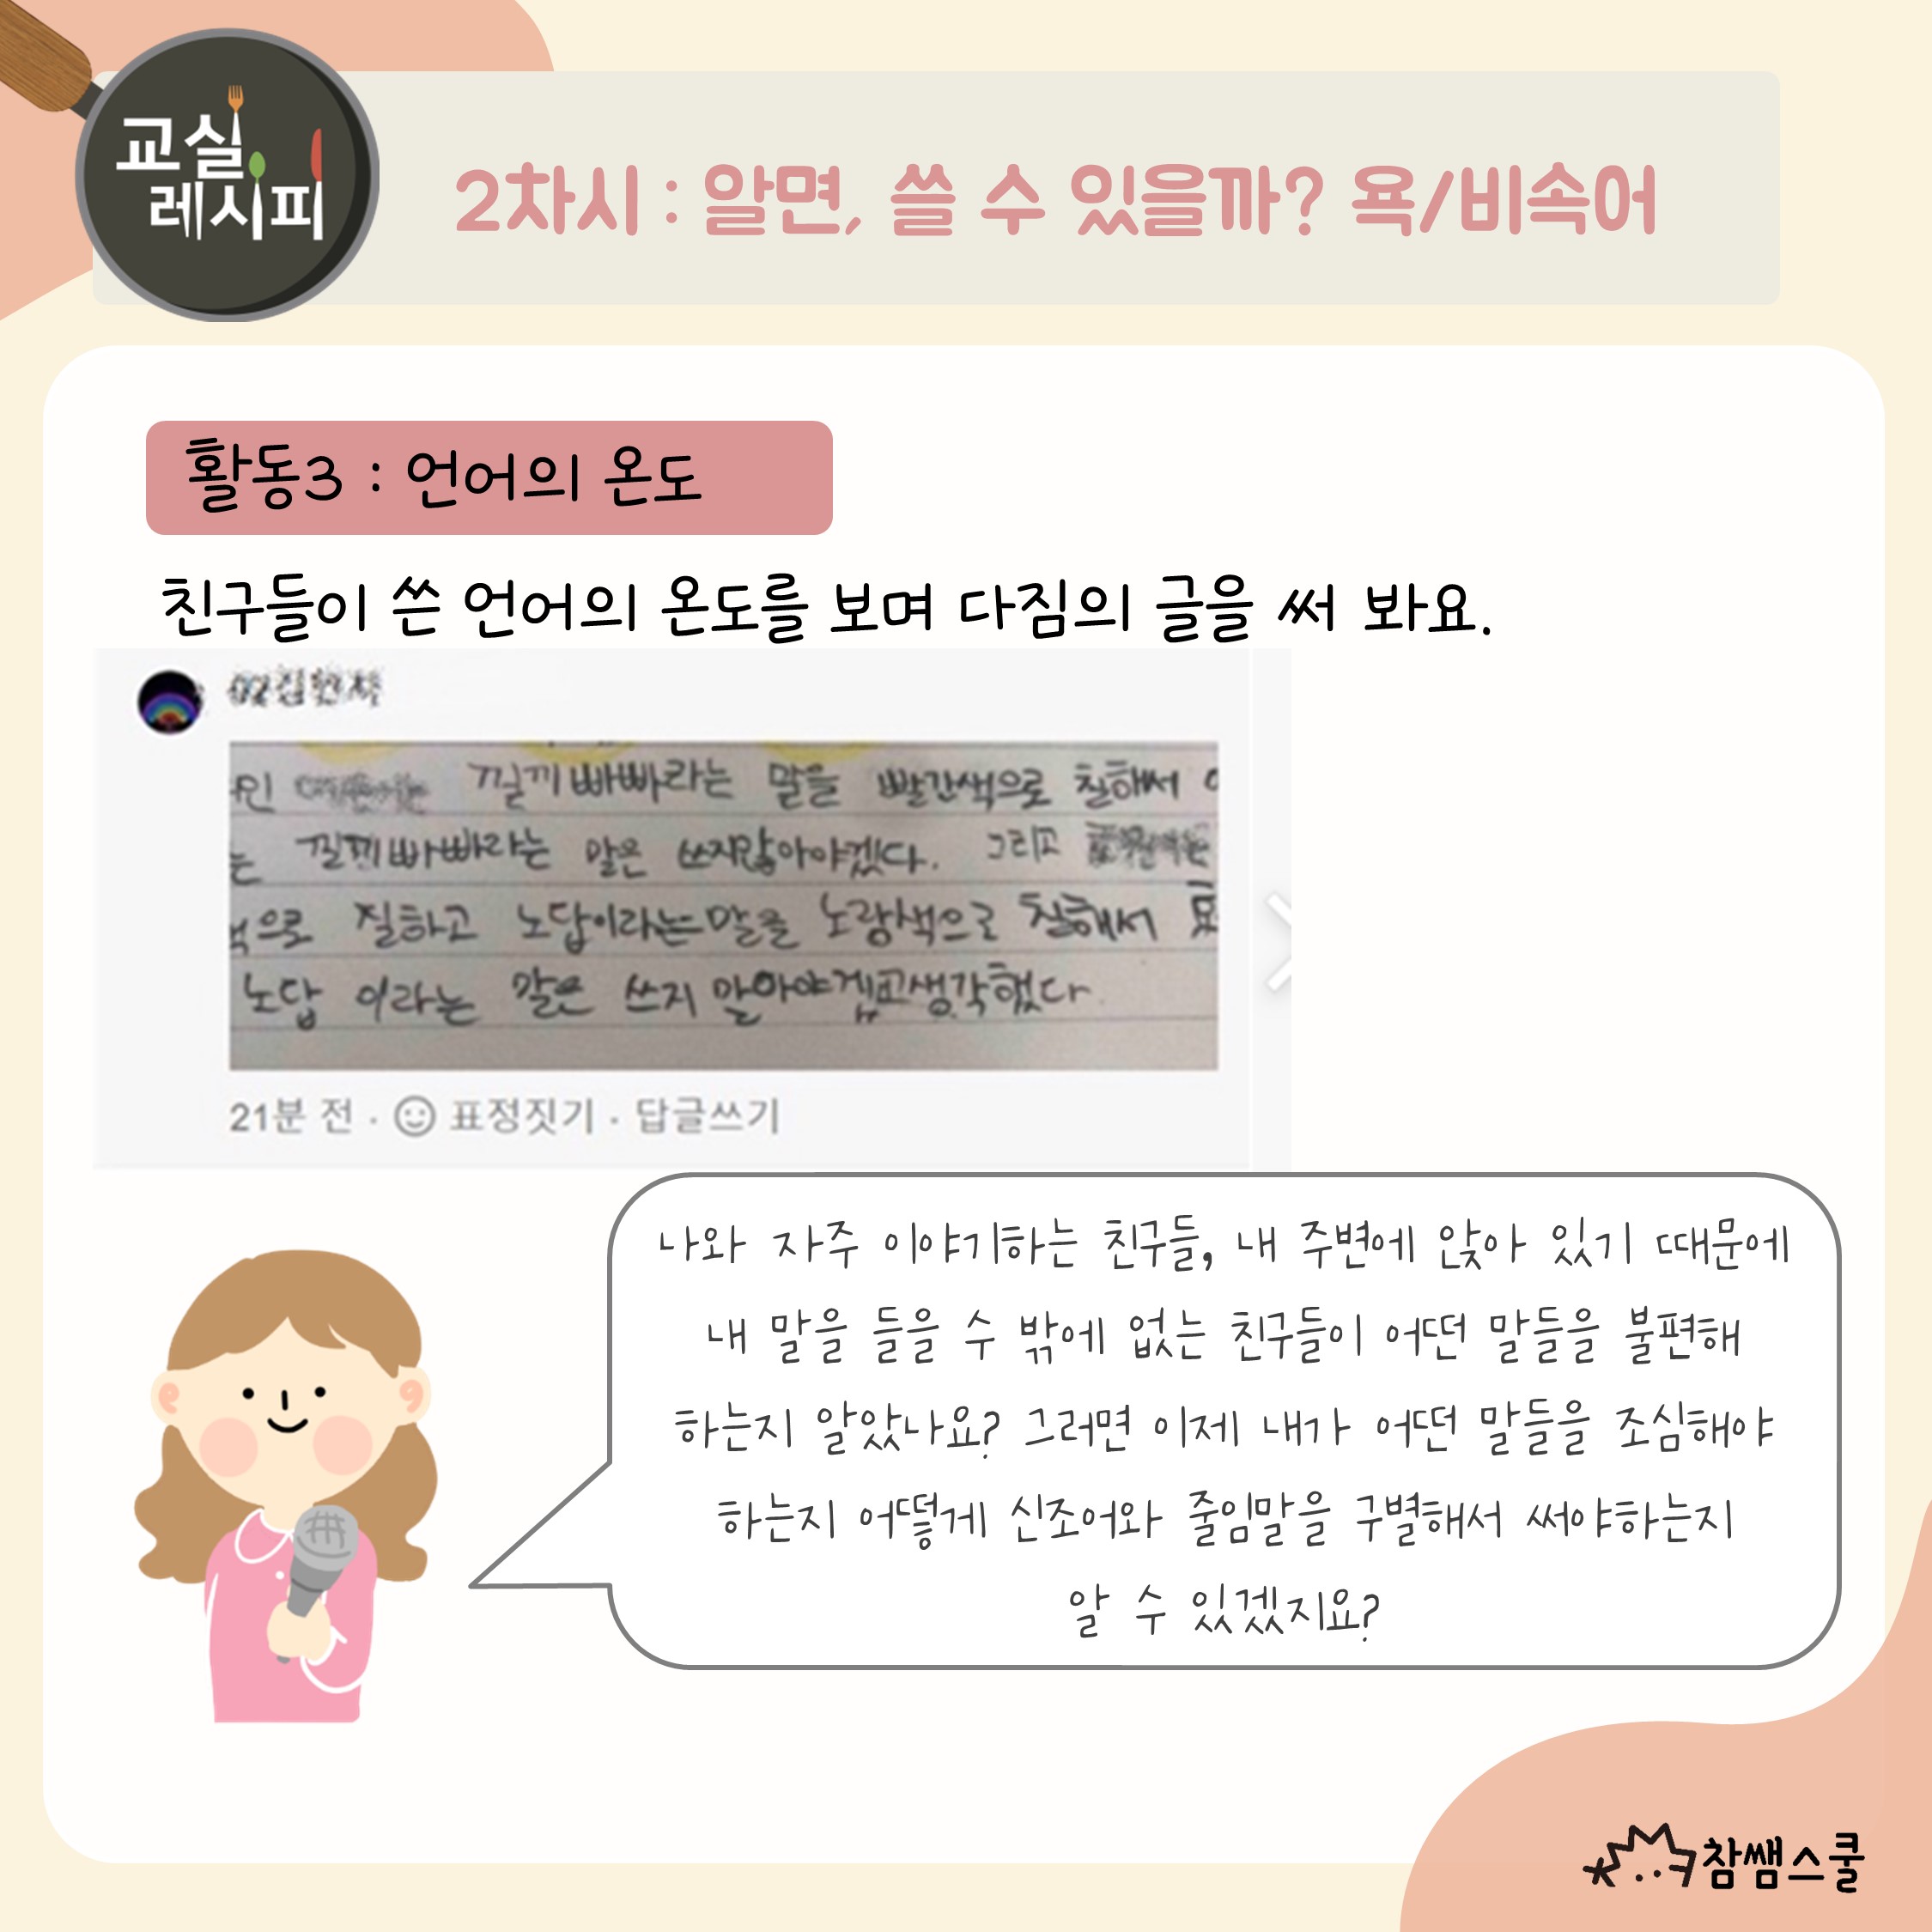 교실
레시피
2차시 : 알면, 쓸 수 있을까? 욕/비속어
활동3 : 언어의 온도
친구들이 쓴 언어의 온도를 보며 다짐의 글을 써 봐요.
낄끼빠빠라는 말을 빨간색으로 칠해서
는 낄끼빠빠라는 말은 쓰지않아야겠다. 그리고
색으로 칠하고 노답이라는말을 노랑색으로 칠해서
노답 이라는 말은 쓰지 말아야겠고생각했다
21분 전 · 표정짓기 · 답글쓰기
나와 자주 이야기하는 친구들, 내 주변에 앉아 있기 때문에
내 말을 들을 수 밖에 없는 친구들이 어떤 말들을 불편해
하는지 알았나요? 그러면 이제 내가 어떤 말들을 조심해야
하는지 어떻게 신조어와 줄임말을 구별해서 써야하는지
알 수 있겠지요?
참쌤스쿨